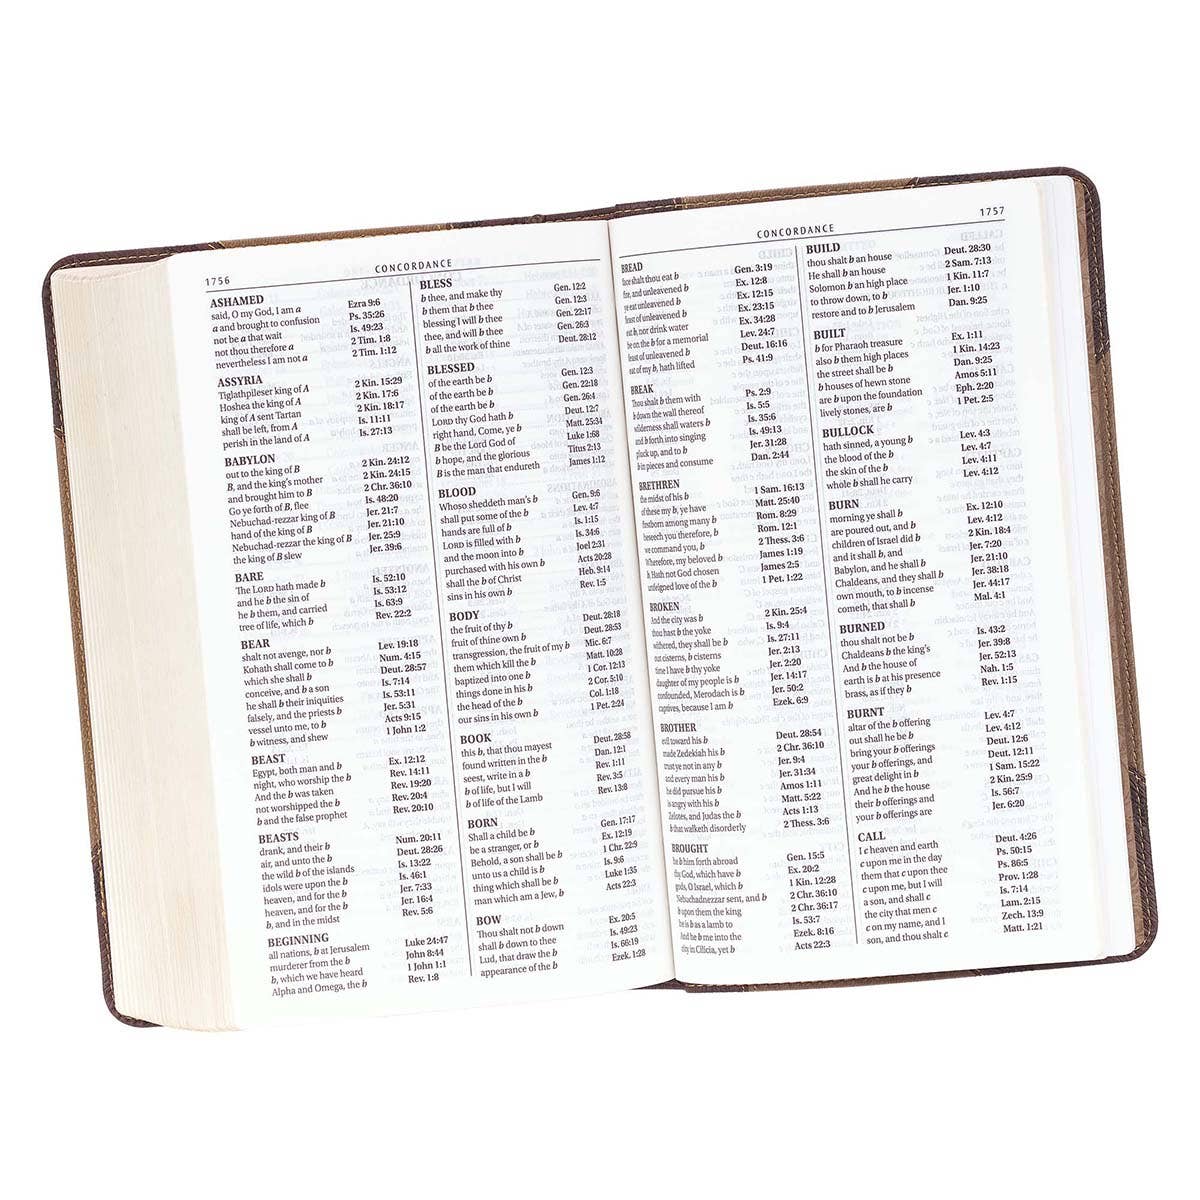 1756
CONCORDANCE
ASHAMED
said, O my God, I am a Ezra 9:6
a and brought to confusion Ps. 35:26
not be a that wait Is. 49:23
not thou therefore a 2 Tim. 1:8
nevertheless I am not a 2 Tim. 1:12
ASSYRIA
Tiglathpileser king of A 2 Kin. 15:29
Hoshea the king of A 2 Kin. 17:6
king of A sent Tartan 2 Kin. 18:17
shall be left, from A Is. 11:11
perish in the land of A Is. 27:13
BABYLON
out to the king of B 2 Kin. 24:12
B, and the king's mother 2 Kin. 24:15
and brought him to B 2 Chr. 36:10
Go ye forth of B, flee Is. 48:20
Nebuchad-rezzar king of B Jer. 21:7
hand of the king of B Jer. 21:10
Nebuchad-rezzar the king of B Jer. 25:9
the king of B slew Jer. 39:6
BARE
The LORD hath made b Is. 52:10
and he b the sin of Is. 53:12
he b them, and carried Is. 63:9
tree of life, which b Rev. 22:2
BEAR
shalt not avenge, nor b Lev. 19:18
Kohath shall come to b Num. 4:15
which she shall b Deut. 28:57
conceive, and b a son Is. 7:14
he shall b their iniquities Is. 53:11
falsely, and the priests b Jer. 5:31
vessel unto me, to b Acts 9:15
b witness, and shew 1 John 1:2
BEAST
Egypt, both man and b Ex. 12:12
night, who worship the b Rev. 14:11
And the b was taken Rev. 19:20
not worshipped the b Rev. 20:4
b and the false prophet Rev. 20:10
BEASTS
drank, and their b Num. 20:11
air, and unto the b Deut. 28:26
the wild b of the islands Is. 13:22
idols were upon the b Is. 46:1
heaven, and for the b Jer. 7:33
heaven, and for the b Jer. 16:4
b, and in the midst Rev. 5:6
BEGINNING
all nations, b at Jerusalem Luke 24:47
murderer from the b John 8:44
b, which we have heard 1 John 1:1
Alpha and Omega, the b Rev. 1:8
BLESS
b thee, and make thy Gen. 12:2
b them that b thee Gen. 12:3
blessing I will b thee Gen. 22:17
thee, and will b thee Gen. 26:3
b all the work of thine Deut. 28:12
BLESSED
of the earth be b Gen. 12:3
of the earth be b Gen. 22:18
of the earth be b Gen. 26:4
LORD thy God hath b Deut. 12:7
right hand, Come, ye b Matt. 25:34
B be the Lord God of Luke 1:68
b hope, and the glorious Titus 2:13
B is the man that endureth James 1:12
BLOOD
Whoso sheddeth man's b Gen. 9:6
shall put some of the b Lev. 4:7
hands are full of b Is. 1:15
LORD is filled with b Is. 34:6
and the moon into b Joel 2:31
purchased with his own b Acts 20:28
shall the b of Christ Heb. 9:14
sins in his own b Rev. 1:5
BODY
the fruit of thy b Deut. 28:18
fruit of thine own b Deut. 28:53
transgression, the fruit of my b Mic. 6:7
them which kill the b Matt. 10:28
baptized into one b 1 Cor. 12:13
things done in his b 2 Cor. 5:10
the head of the b Col. 1:18
our sins in his own b 1 Pet. 2:24
BOOK
this b, that thou mayest Deut. 28:58
found written in the b Dan. 12:1
seest, write in a b Rev. 1:11
b of life, but I will Rev. 3:5
b of life of the Lamb Rev. 13:8
BORN
Shall a child be b Gen. 17:17
be a stranger, or b Ex. 12:19
Behold, a son shall be b 1 Chr. 22:9
unto us a child is b Is. 9:6
thing which shall be b Luke 1:35
man which am a Jew, b Acts 22:3
BOW
Thou shalt not b down Ex. 20:5
shall b down to thee Is. 49:23
Lud, that draw the b Is. 66:19
appearance of the b Ezek. 1:28
1757
CONCORDANCE
BREAD
face shalt thou eat b Gen. 3:19
fire, and unleavened b Ex. 12:8
ye eat unleavened b Ex. 12:15
feast of unleavened b Ex. 23:15
eat b, nor drink water Ex. 34:28
be on the b for a memorial Lev. 24:7
feast of unleavened b Deut. 16:16
eat of my b, hath lifted Ps. 41:9
BREAK
Thou shalt b them with Ps. 2:9
b down the wall thereof Is. 5:5
wilderness shall waters b Is. 35:6
and b forth into singing Is. 49:13
pluck up, and to b Jer. 31:28
b in pieces and consume Dan. 2:44
BRETHREN
the midst of his b 1 Sam. 16:13
of these my b, ye have Matt. 25:40
firstborn among many b Rom. 8:29
beseech you therefore, b Rom. 12:1
we command you, b 2 Thess. 3:6
Wherefore, my beloved b James 1:19
b Hath not God chosen James 2:5
unfeigned love of the b 1 Pet. 1:22
BROKEN
And the city was b 2 Kin. 25:4
thou hast b the yoke Is. 9:4
withered, they shall be b Is. 27:11
out cisterns, b cisterns Jer. 2:13
time I have b thy yoke Jer. 2:20
daughter of my people is b Jer. 14:17
confounded, Merodach is b Jer. 50:2
captives, because I am b Ezek. 6:9
BROTHER
evil toward his b Deut. 28:54
made Zedekiah his b 2 Chr. 36:10
trust ye not in any b Jer. 9:4
and every man his b Jer. 31:34
he did pursue his b Amos 1:11
is angry with his b Matt. 5:22
Zelotes, and Judas the b Acts 1:13
b that walketh disorderly 2 Thess. 3:6
BROUGHT
he b him forth abroad Gen. 15:5
thy God, which have b Ex. 20:2
gods, O Israel, which b 1 Kin. 12:28
Nebuchadnezzar sent, and b 2 Chr. 36:10
b upon them the king 2 Chr. 36:17
he is b as a lamb to Is. 53:7
And he b me into the Ezek. 8:16
city in Cilicia, yet b Acts 22:3
BUILD
thou shalt b an house Deut. 28:30
He shall b an house 2 Sam. 7:13
Solomon b an high place 1 Kin. 11:7
to throw down, to b Jer. 1:10
restore and to b Jerusalem Dan. 9:25
BUILT
b for Pharaoh treasure Ex. 1:11
also b them high places 1 Kin. 14:23
the street shall be b Dan. 9:25
b houses of hewn stone Amos 5:11
are b upon the foundation Eph. 2:20
lively stones, are b 1 Pet. 2:5
BULLOCK
hath sinned, a young b Lev. 4:3
the blood of the b Lev. 4:7
the skin of the b Lev. 4:11
whole b shall he carry Lev. 4:12
BURN
morning ye shall b Ex. 12:10
are poured out, and b Lev. 4:12
children of Israel did b 2 Kin. 18:4
and it shall b, and Jer. 7:20
Babylon, and he shall b Jer. 21:10
Chaldeans, and they shall b Jer. 38:18
own mouth, to b incense Jer. 44:17
cometh, that shall b Mal. 4:1
BURNED
thou shalt not be b Is. 43:2
Chaldeans b the king's Jer. 39:8
And b the house of Jer. 52:13
earth is b at his presence Nah. 1:5
brass, as if they b Rev. 1:15
BURNT
altar of the b offering Lev. 4:7
out shall he be b Lev. 4:12
bring your b offerings Deut. 12:6
your b offerings, and Deut. 12:11
great delight in b 1 Sam. 15:22
And he b the house 2 Kin. 25:9
their b offerings and Is. 56:7
your b offerings are Jer. 6:20
CALL
I c heaven and earth Deut. 4:26
c upon me in the day Ps. 50:15
them that c upon thee Ps. 86:5
c upon me, but I will Prov. 1:28
a son, and shall c Is. 7:14
the city that men c Lam. 2:15
c on my name, and I Zech. 13:9
son, and thou shalt c Matt. 1:21